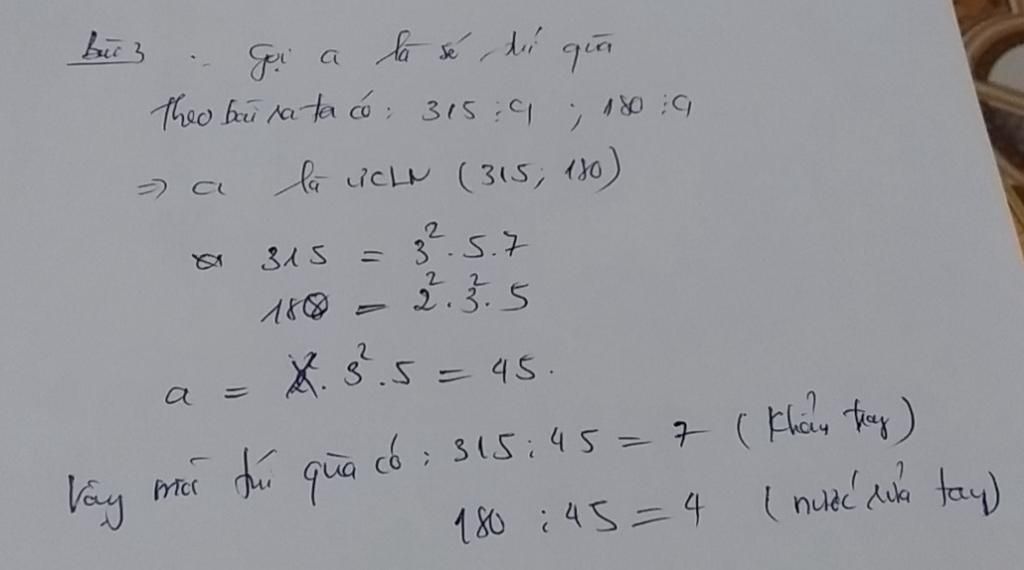 bài 3 . Gọi a là số túi quà
Theo bài ra ta có : 315 : a ; 180 : a
=> a là ƯCLN (315; 180)
315 = 3². 5. 7
180 = 2². 3². 5
a = 3². 5 = 45.
Vậy mỗi túi quà có : 315 : 45 = 7 (khẩu tay)
180 : 45 = 4 (nước rửa tay)